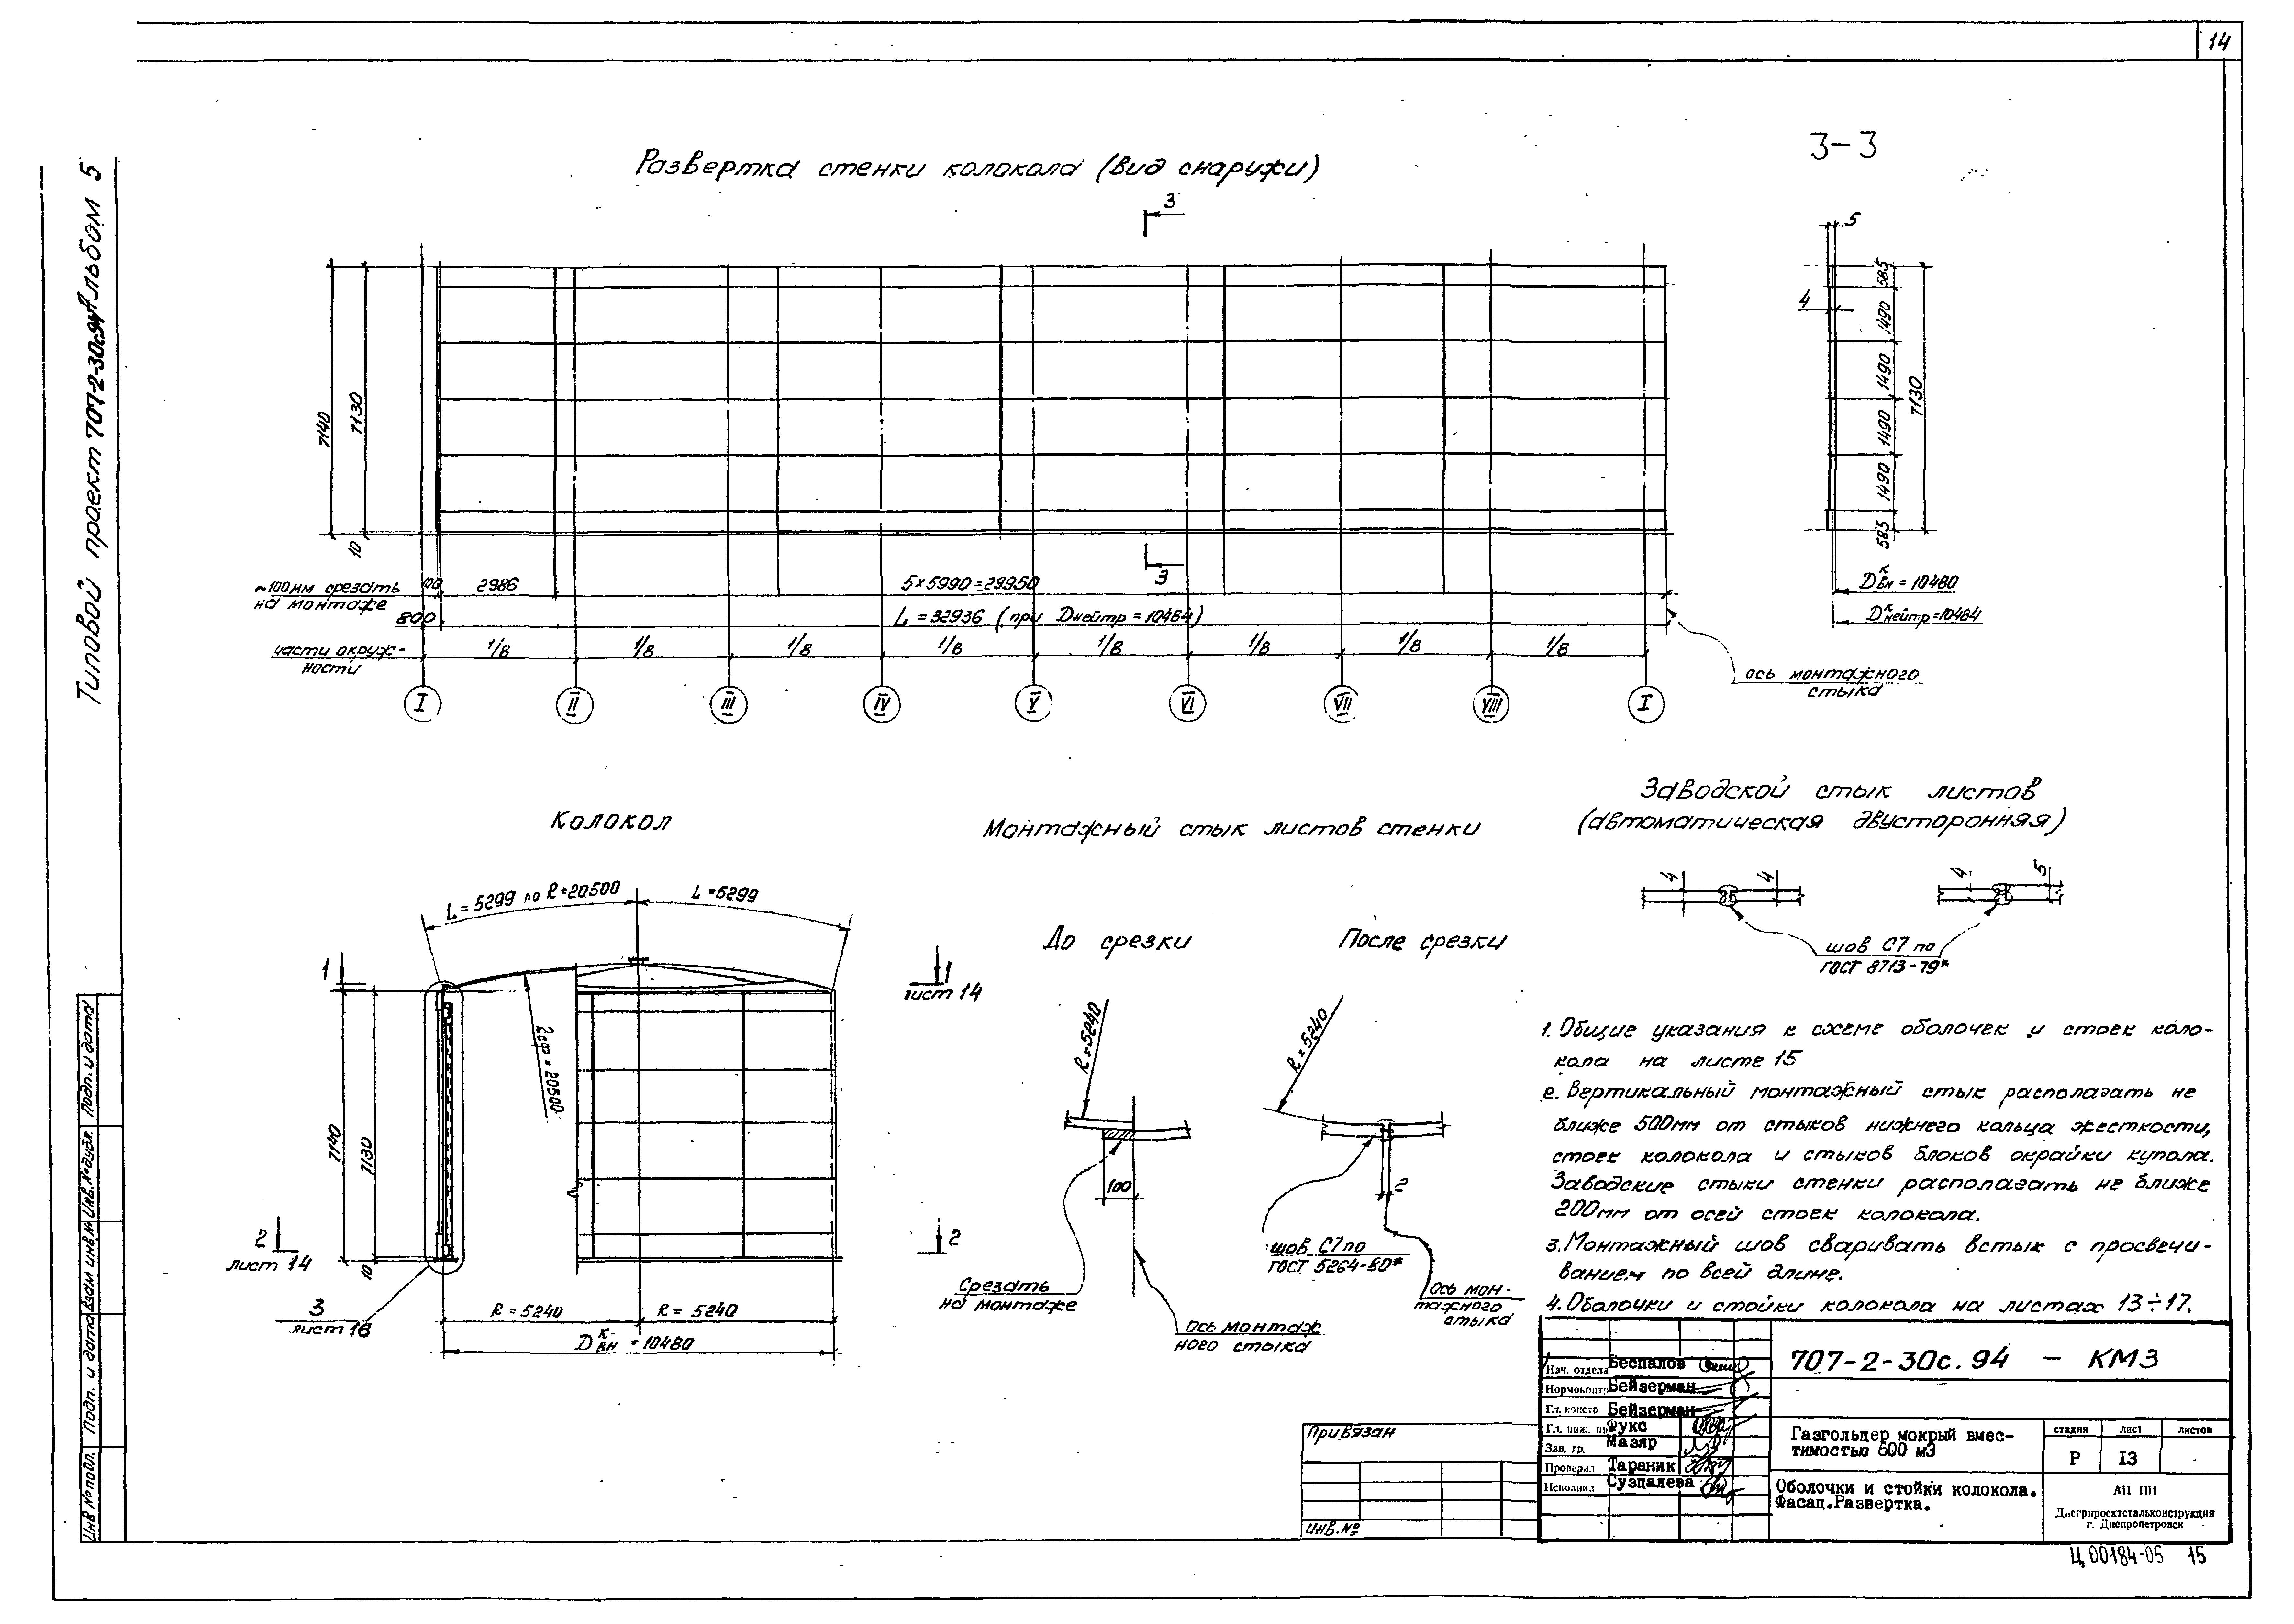 14
Типовой проект 707-2-30с.94 Альбом 5
Развертка стенки колокола (вид снаружи)
3-3
3
5
4
585
1490
1490
1490
1490
585
7130
7140
7130
10
3
~100мм срезать
на монтаже
100
2986
5×5990=29950
800
L = 32936 (при Dнейтр = 10484)
части окруж-
ности
1/8
1/8
1/8
1/8
1/8
1/8
1/8
1/8
I
II
III
IV
V
VI
VII
VIII
I
ось монтажного
стыка
Dквн = 10480
Dкнейтр=10484
Колокол
L = 5299 по R=20500
L =5299
1
1
лист 14
Rсф = 20500
7140
7130
10
2
лист 14
2
3
лист 16
R = 5240
R = 5240
Dквн = 10480
Монтажный стык листов стенки
До срезки
После срезки
R = 5240
R = 5240
100
2
Срезать
на монтаже
ось монтаж
ного стыка
шов С7 по
ГОСТ 5264-80*
Ось мон-
тажного
стыка
Заводской стык листов
(автоматическая двусторонняя)
4
4
4
5
шов С7 по
ГОСТ 8713-79*
1. Общие указания к схеме оболочек и стоек коло-
кола на листе 15
2. Вертикальный монтажный стык располагать не
ближе 500мм от стыков нижнего кольца жесткости,
стоек колокола и стыков блоков окрайки купола.
Заводские стыки стенки располагать не ближе
200мм от осей стоек колокола.
3. Монтажный шов сваривать встык с просвечи-
ванием по всей длине.
4. Оболочки и стойки колокола на листах 13÷17.
Инв № подл.
Подп. и дата
Взам инв.№
Инв.№ дубл.
Подп. и дата
Привязан
Инв.№
Нач. отдела Беспалов
Нормоконтр Бейзерман
Гл. констр Бейзерман
Гл. инж. пр Фукс
Зав. гр. Мазяр
Проверил Тараник
Исполнил Суздалева
707-2-30с.94 - КМ3
Газгольдер мокрый вмес-
тимостью 600 м3
стадия
лист
листов
Р
13
Оболочки и стойки колокола.
Фасад.Развертка.
АП ПИ
Днепрпроектстальконструкция
г. Днепропетровск
Ц.00184-05 15